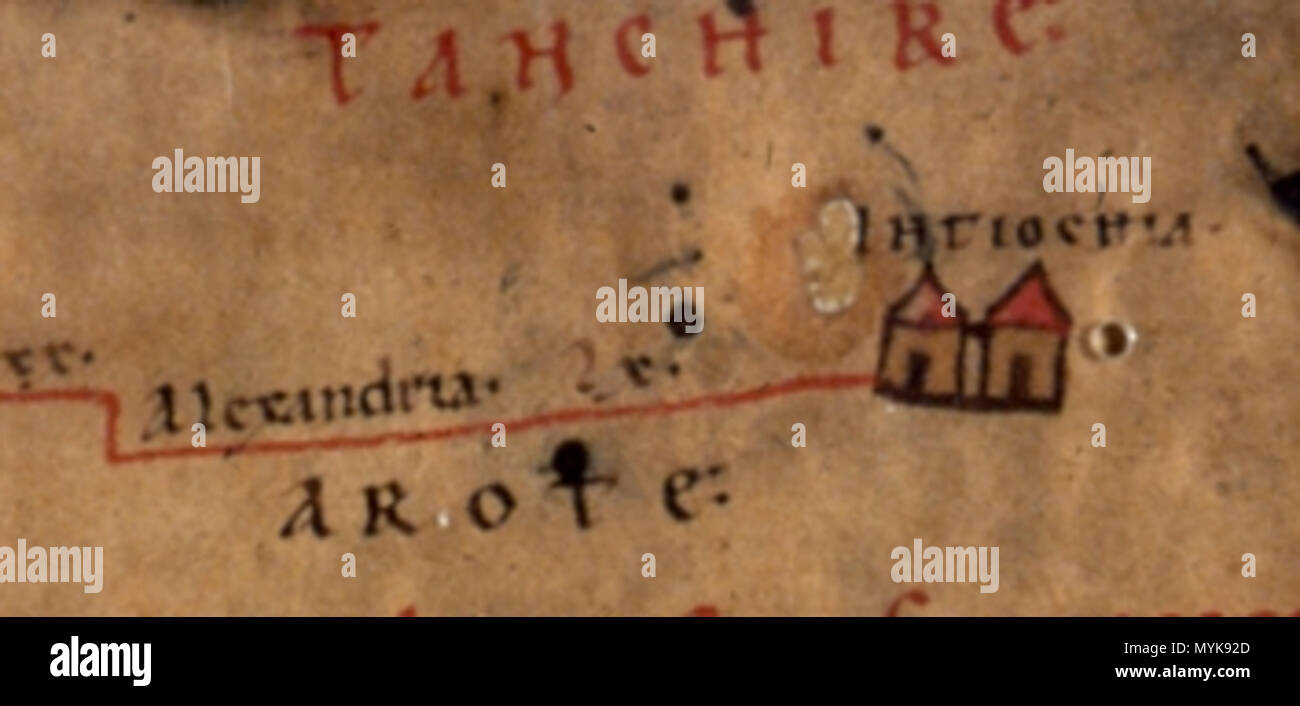 TANCHIRE:
ANTIOCHIA.
xx.
Alexandria.
AROTE:
alamy
alamy
alamy
alamy
alamy
alamy
Image ID: MYK92D
www.alamy.com